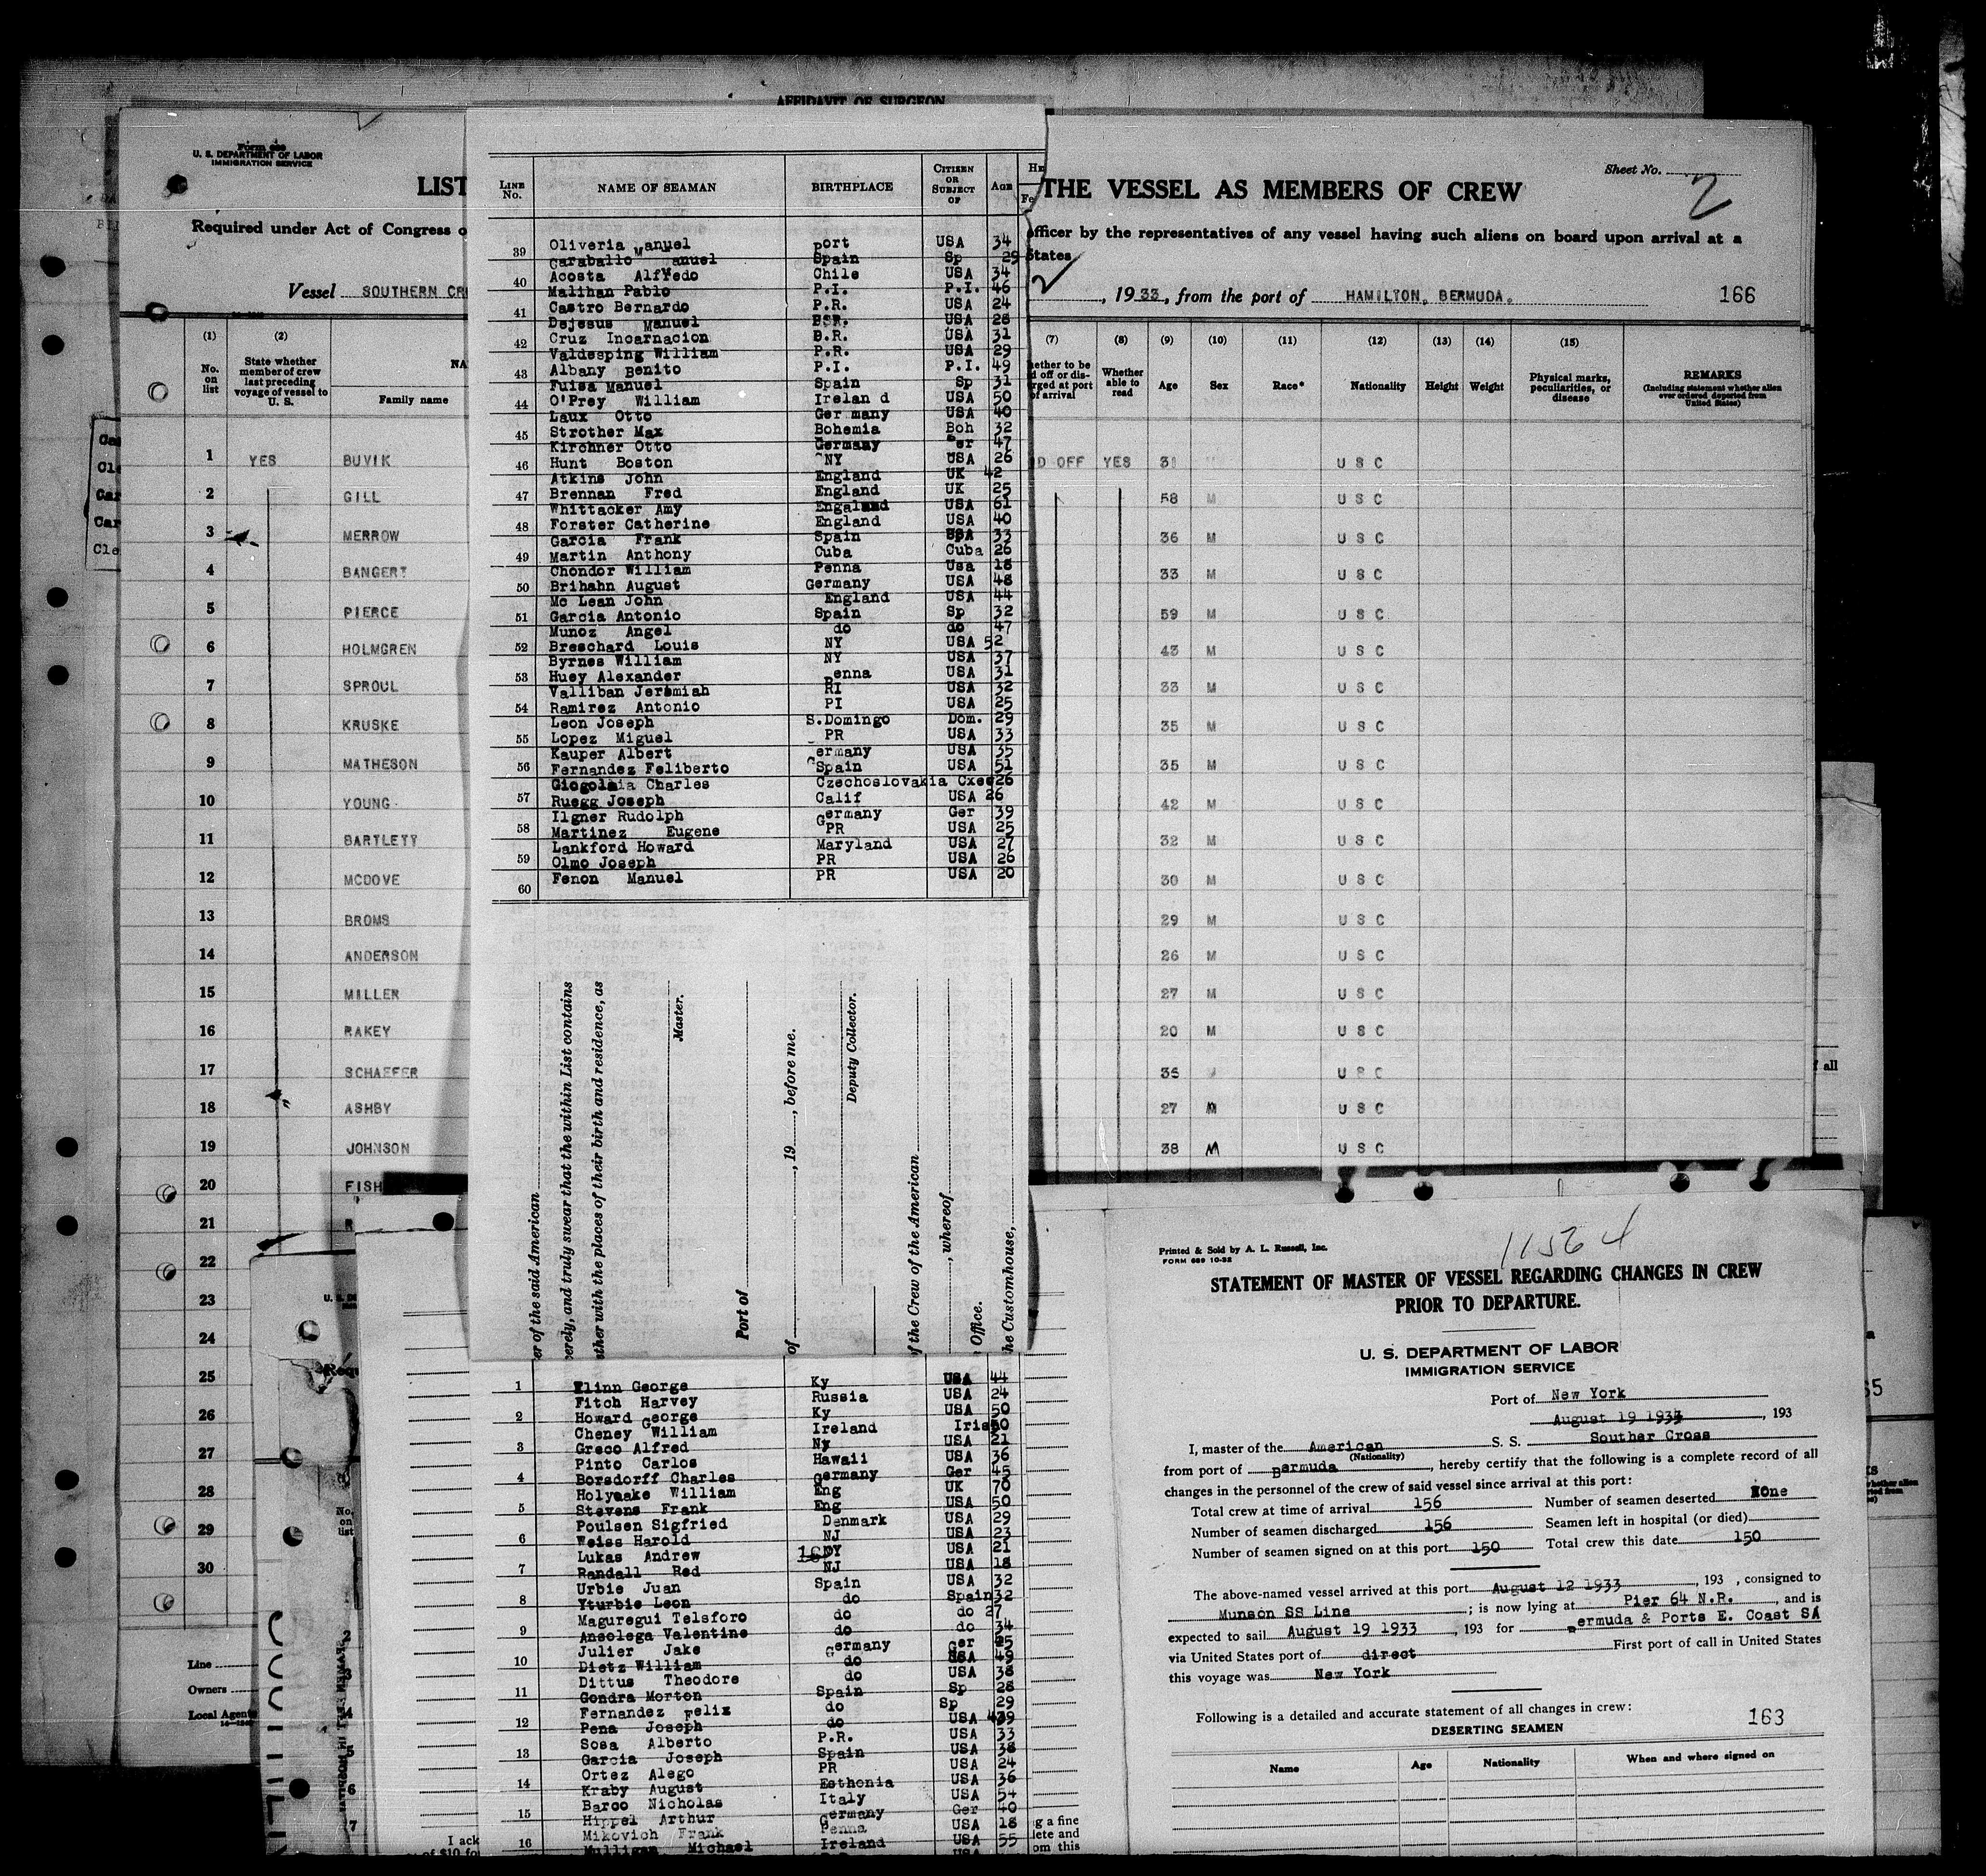 AFFIDAVIT OF SURGEON
Form 689
U. S. DEPARTMENT OF LABOR
IMMIGRATION SERVICE
LIST
Required under Act of Congress o
Vessel SOUTHERN CR
(1) (2)
No. on list
State whether member of crew last preceding voyage of vessel to U. S.
NA
Family name
1 YES BUVIK
2 GILL
3 MERROW
4 BANGERT
5 PIERCE
6 HOLMGREN
7 SPROUL
8 KRUSKE
9 MATHESON
10 YOUNG
11 BARTLETT
12 MCDOVE
13 BROMS
14 ANDERSON
15 MILLER
16 RAKEY
17 SCHAEFER
18 ASHBY
19 JOHNSON
20 FISH
21 R
22
23
24
25
26
27
28
29
30
Line
Owners
Local Agent
LINE No. NAME OF SEAMAN BIRTHPLACE CITIZEN OR SUBJECT OF AGE
39 Oliveria Manuel Port USA 34
Caraballo Manuel Spain Sp 29
40 Acosta Alfredo Chile USA 34
Malihan Pablo P.I. P.I. 46
41 Castro Bernardo P.R. USA 24
Dejesus Manuel USA 28
42 Cruz Incarnacion P.R. USA 31
Valdesping William P.R. USA 29
43 Albany Benito P.I. P.I. 49
Fuisa Manuel Spain Sp 31
44 O'Prey William Irelan d USA 50
Laux Otto Ger many USA 40
45 Strother Max Bohemia Boh 32
Kirchner Otto Germany Ger 47
46 Hunt Boston NY USA 26
Atkins John England UK 42
47 Brennan Fred England UK 25
Whittacker Amy Engaland USA 61
48 Forster Catherine England USA 40
Garcia Frank Spain USA 33
49 Martin Anthony Cuba Cuba 26
Chondor William Penna Usa 18
50 Brihahn August Germany USA 48
Mc Lean John England USA 44
51 Garcia Antonio Spain Sp 32
Munoz Angel do do 47
52 Breschard Louis NY USA 52
Byrnes William NY USA 37
53 Huey Alexander Penna USA 31
Valliban Jeremiah RI USA 32
54 Ramirez Antonio PI USA 25
Leon Joseph S.Domingo Dom. 29
55 Lopez Miguel PR USA 33
Kauper Albert Germany USA 35
56 Fernandez Feliberto Spain USA 51
Charles Czechoslovakia Czec 26
57 Ruegg Joseph Calif USA 26
Ilgner Rudolph Germany Ger 39
58 Martinez Eugene PR USA 25
Lankford Howard Maryland USA 27
59 Olmo Joseph PR USA 26
Fenon Manuel PR USA 20
60
er of the said American
cerely, and truly swear that the within List contains
ether with the places of their birth and residence, as
Master.
Port of
of , 19 , before me.
Deputy Collector.
of the Crew of the American
, whereof
Office.
he Customhouse,
1 Flinn George Ky USA 44
Fitch Harvey Russia USA 24
2 Howard George Ky USA 50
Cheney William Ireland Irish 50
3 Greco Alfred Ny USA 21
Pinto Carlos Hawaii USA 36
4 Borsdorff Charles Germany Ger 45
Holyoake William Eng UK 70
5 Stevens Frank Eng USA 50
Poulsen Sigfried Denmark USA 29
6 Weiss Harold NJ USA 23
Lukas Andrew NY USA 21
7 Randall Red NJ USA 18
Urbie Juan Spain USA 32
8 Yturbie Leon do Spain 32
Maguregui Telsforo do do 27
9 Ansolega Valentine do do 34
Julier Jake Germany Ger 25
10 Dietz William do USA 49
Dittus Theodore do USA 38
11 Gondra Morton Spain Sp 28
Fernandez Felix do Sp 29
12 Pena Joseph do USA 39
Sosa Alberto P.R. USA 33
13 Garcia Joseph Spain USA 38
Ortez Alego PR USA 24
14 Kraby August Esthonia USA 36
Baroo Nicholas Italy USA 54
15 Hippel Arthur Germany Ger 40
Mikovich Frank Penna USA 18
16 Mulligan Michael Ireland USA 55
Sheet No. 2
THE VESSEL AS MEMBERS OF CREW
officer by the representatives of any vessel having such aliens on board upon arrival at a
States
, 1933, from the port of HAMILTON, BERMUDA. 166
(7) (8) (9) (10) (11) (12) (13) (14) (15)
Whether able to read
Age Sex Race* Nationality Height Weight
Physical marks, peculiarities, or disease
REMARKS
(Including statement whether alien ever ordered deported from United States)
D OFF YES 31 U S C
58 M U S C
36 M U S C
33 M U S C
59 M U S C
43 M U S C
33 M U S C
35 M U S C
35 M U S C
42 M U S C
32 M U S C
30 M U S C
29 M U S C
26 M U S C
27 M U S C
20 M U S C
35 U S C
27 M U S C
38 M U S C
11564
Printed & Sold by A. L. Russell, Inc.
FORM 689 10-32
STATEMENT OF MASTER OF VESSEL REGARDING CHANGES IN CREW
PRIOR TO DEPARTURE.
U. S. DEPARTMENT OF LABOR
IMMIGRATION SERVICE
Port of New York
August 19 1933, 193
I, master of the American S. S. Souther Cross
(Nationality)
from port of Bermuda, hereby certify that the following is a complete record of all
changes in the personnel of the crew of said vessel since arrival at this port:
Total crew at time of arrival 156 Number of seamen deserted None
Number of seamen discharged 156 Seamen left in hospital (or died)
Number of seamen signed on at this port 150 Total crew this date 150
The above-named vessel arrived at this port August 12 1933, 193 , consigned to
Munson SS Line ; is now lying at Pier 64 N.R. , and is
expected to sail August 19 1933, 193 for Bermuda & Ports E. Coast SA
via United States port of direct First port of call in United States
this voyage was New York
Following is a detailed and accurate statement of all changes in crew:
163
DESERTING SEAMEN
Name Age Nationality When and where signed on
I ack
of $10 fo
g a fine
lete and
om this